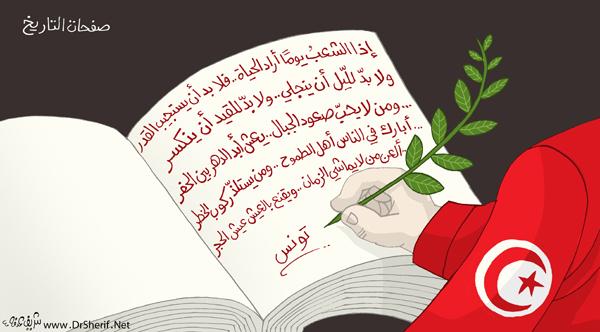 صفحات التاريخ
إذا الشعبُ يومًا أراد الحياة.. فلا بد أن يستجيب القدر
ولا بدّ لليل أن ينجلي.. ولا بدّ للقيد أن ينكسر
...ومن لا يحبّ صعود الجبال.. يعش أبد الدهر بين الحفر
أبارك في الناس أهل الطموح.. ومن يستلذّ ركوب الخطر...
وألعن من لا يماشي الزمان.. ويقنع بالعيش عيش الحجر
تونس..
www.DrSherif.Net